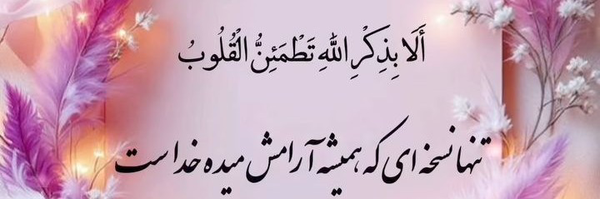 أَلَا بِذِكْرِ اللَّهِ تَطْمَئِنُّ الْقُلُوبُ
تنها نسخه ای که همیشه آرامش میده خداست